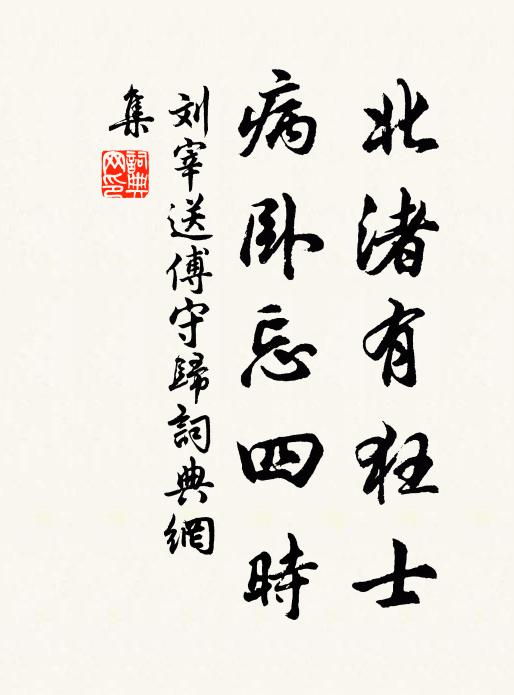 北渚有狂士
病卧忘四時
刘宰送傅守歸詞典網
集
詞典网印